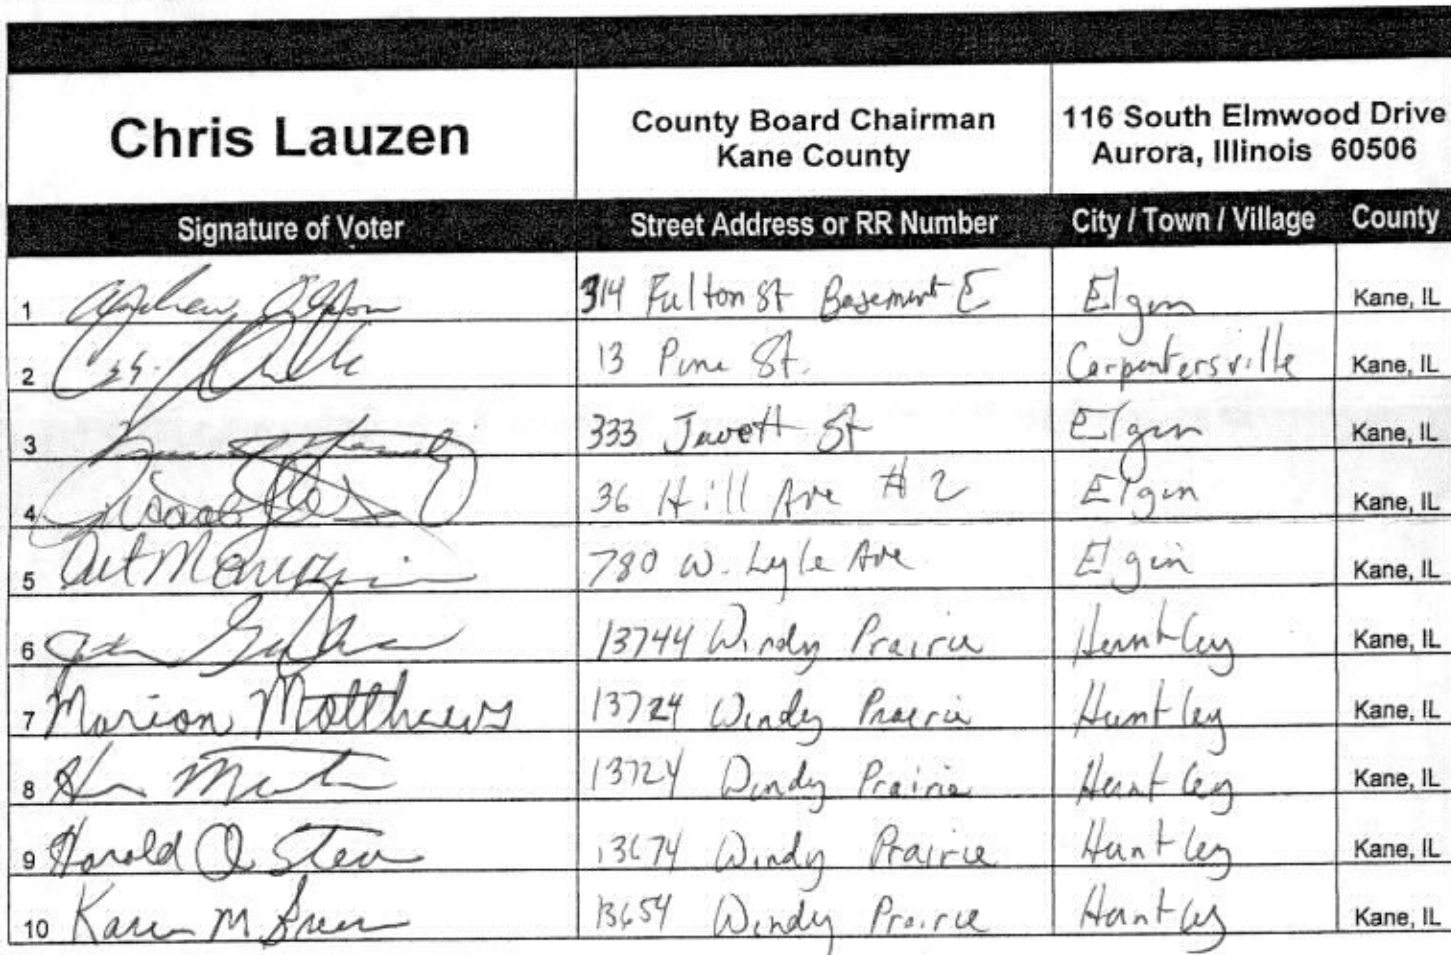 Chris Lauzen
County Board Chairman
Kane County
116 South Elmwood Drive
Aurora, Illinois 60506
Signature of Voter Street Address or RR Number City / Town / Village County
1 Andrew 314 Fulton St Basement E Elgin Kane, IL
2 13 Pine St. Carpentersville Kane, IL
3 333 Jewett St Elgin Kane, IL
4 36 Hill Ave # 2 Elgin Kane, IL
5 Art 780 W. Lyle Ave Elgin Kane, IL
6 13744 Windy Prairie Huntley Kane, IL
7 Marion Matthews 13724 Windy Prairie Huntley Kane, IL
8 13724 Windy Prairie Huntley Kane, IL
9 Harold 13674 Windy Prairie Huntley Kane, IL
10 Karen M 13654 Windy Prairie Huntley Kane, IL